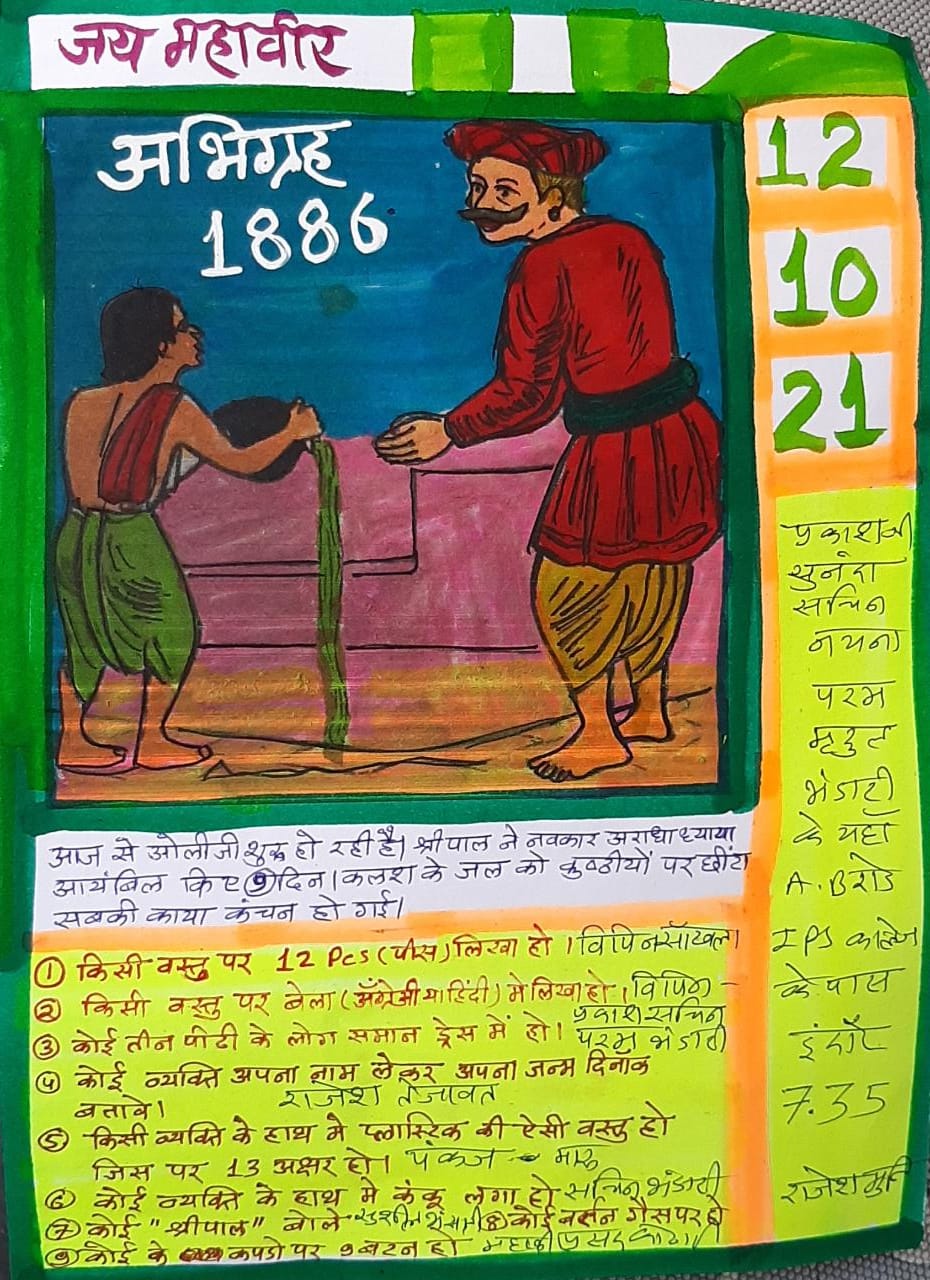 जय महावीर
अभिग्रह
1886
12
10
21
प्रकाशजी
सुनंदा
सचिन
नयना
परम
मुकुट
भंडारी
के यहाँ
A.B रोड
IPS कालेज
के पास
इंदौर
7.35
राजेशमुनि
आज से ओलीजी शुरू हो रही है। श्रीपाल ने नवकार अराधा ध्याया
आयंबिल किए ⑨दिन। कलश के जल को कुष्ठीयों पर छींटा
सबकी काया कंचन हो गई।
① किसी वस्तु पर 12 Pcs (पीस) लिखा हो। विपिन साँखला
② किसी वस्तु पर बेला (अँग्रेजी या हिंदी) में लिखा हो। विपिन -
प्रकाश सचिन
③ कोई तीन पीढी के लोग समान ड्रेस में हो। परम भंडारी
④ कोई व्यक्ति अपना नाम लेकर अपना जन्म दिनाँक
बतावे। राजेश तेजावत
⑤ किसी व्यक्ति के हाथ मे प्लास्टिक की ऐसी वस्तु हो
जिस पर 13 अक्षर हो। पंकज मारू
⑥ कोई व्यक्ति के हाथ मे कंकू लगा हो सचिन भंडारी
⑦ कोई "श्रीपाल" बोले ⑧ कोई बर्तन गैस पर हो
⑨ कोई के कपडो पर 9 बटन हो